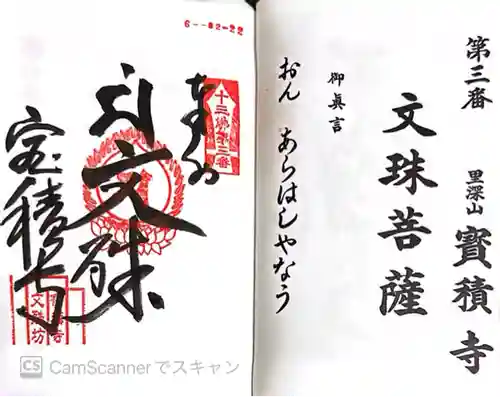 第三番
里深山 寳積寺
文珠菩薩
御眞言
おん あらはしやなう
6--02-22
十三佛第三番
文珠
宝積寺
文珠坊
CS CamScannerでスキャン